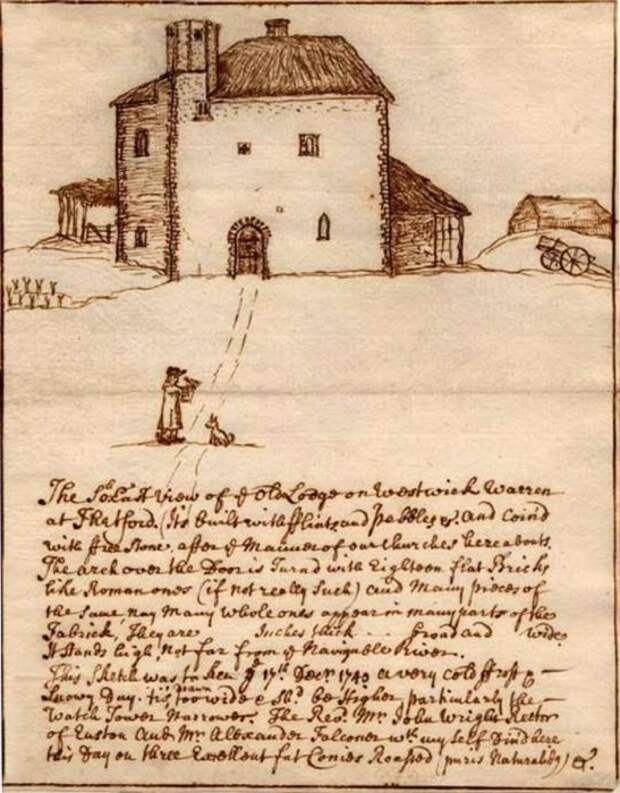 The So: East View of ye Old Lodge on Westwick Warren
at Thetford. (Its built with fflints and pebbles &. and Coin'd
with ffree Stone, after ye Manner of our Churches hereabouts.
The arch over the Door is Turnd with Eighteen flat Bricks
like Roman ones (if not really Such) and Many pieces of
the Same, nay Many whole ones appear in many parts of the
Fabrick, They are Inches thick . . . broad and wide.
It Stands high, Not far from ye Navigable River.
This Sketch was taken ye 17th. Decr. 1740 a very cold ffrost &
Snowy Day. tis drawn too wide & Shd. be Higher particularly the
Watch Tower Narrower. The Revd. Mr. John Wright Rector
of Euston and Mr. Alexander Falconer wth. my Self Din'd here
this Day on three Excellent fat Conies Roasted (puris Naturalibq) &c.